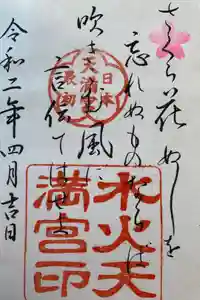 さくら花ぬしを
忘れぬものならば
吹きこむ風に
言伝てはせよ
令和二年四月吉日
日本
天満宮
最初
水火天
満宮印